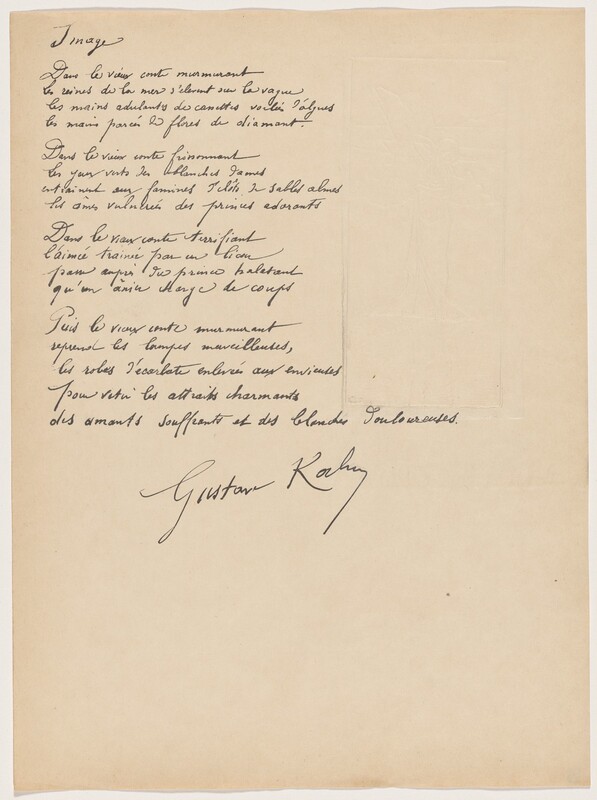 Image
Dans le vieux conte murmurant
les reines de la mer s'élèvent sur la vague
les mains adulants de voilés d'algues
les mains parées de flores de diamant.
Dans le vieux conte frissonnant
les yeux verts des blanches dames
entrainent aux famines d'îlots de sables almes
les âmes vulnérées des princes adorants
Dans le vieux conte terrifiant
l'aimée trainée par un licou
passe auprès du prince haletant
qu'un ânier charge de coups
Puis le vieux conte murmurant
reprend les lampes merveilleuses,
les robes d'écarlate enlevées aux envieuses
pour vêtir les attraits charmants
des amants souffrants et des blanches douloureuses.
Gustave Kahn